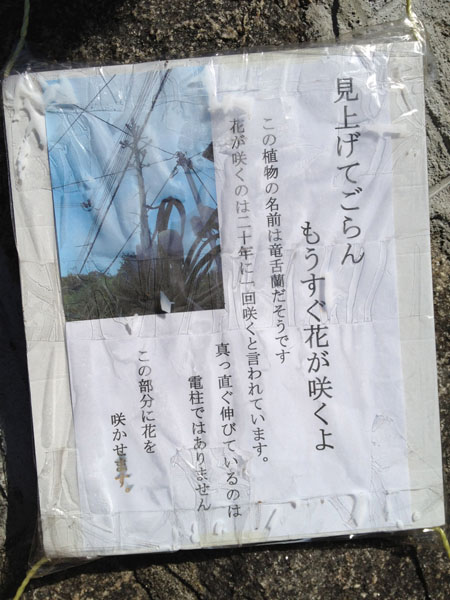 見上げてごらん
もうすぐ花が咲くよ
この植物の名前は竜舌蘭だそうです
花が咲くのは二十年に一回咲くと言われています。
真っ直ぐ伸びているのは
電柱ではありません
この部分に花を
咲かせます